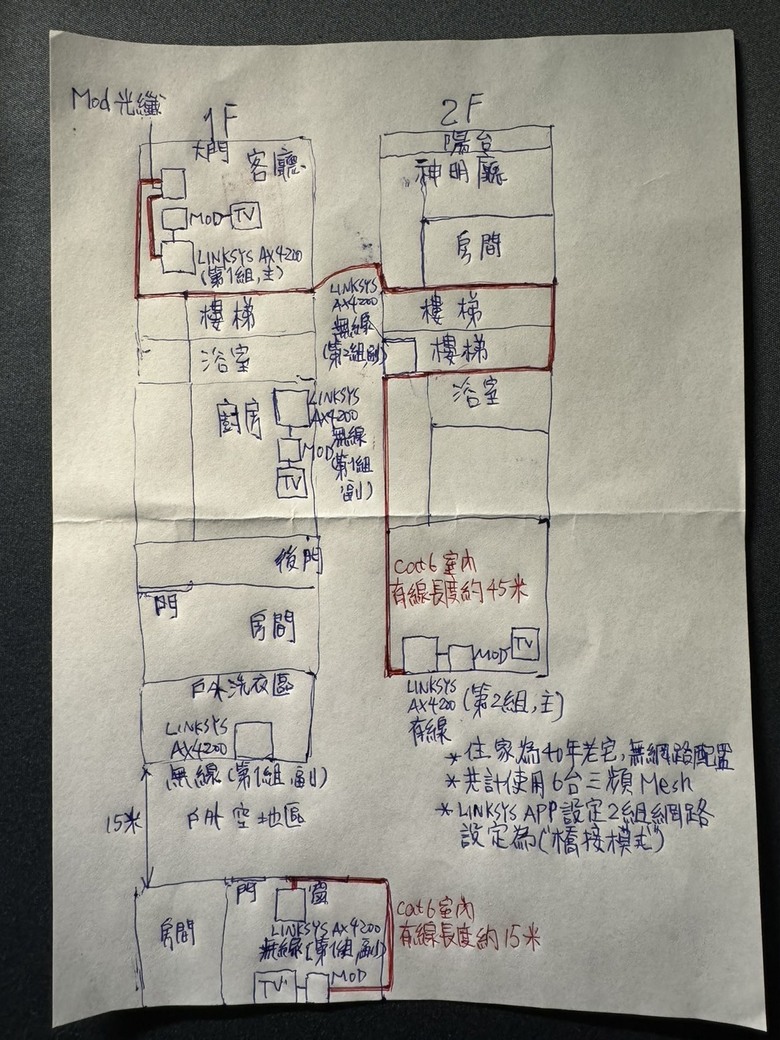 Mod光纖
1F
大門
客廳
MOD
TV
LINKSYS AX4200
(第1組,主)
樓梯
浴室
廚房
LINKSYS
AX4200
無線
(第1組
副)
MOD
TV
後門
門
房間
戶外洗衣區
LINKSYS
AX4200
無線(第1組,副)
15米
戶外空地區
房間
門
窗
LINKSYS AX4200
無線(第1組,副)
TV
MOD
cat6室內
有線長度約15米
2F
陽台
神明廳
房間
樓梯
LINKSYS
AX4200
無線
(第2組,副)
樓梯
浴室
cat6室內
有線長度約45米
MOD
TV
LINKSYS
AX4200
有線
(第2組,主)
*住家為40年老宅,無網路配置
*共計使用6台三頻Mesh
*LINKSYS APP設定2組網路
設定為("橋接模式")